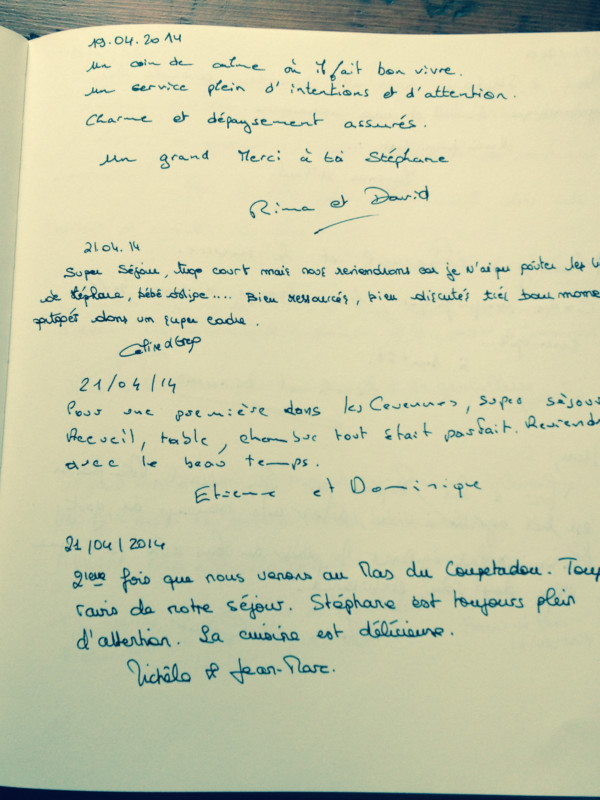 19.04.2014
un coin de calme où il fait bon vivre.
un service plein d'intentions et d'attention.
Charme et dépaysement assurés.
Un grand Merci à toi Stéphane
Rima et David
21.04.14
Super Séjour, trop court mais nous reviendrons car je N'ai pu goûter les
de Stéphane, bébé oblige.... Bien ressourcés, bien discutés très bons mome
partagés dans un super cadre.
21/04/14
Pour une première dans les Cevennes, super séjou
Accueil, table, chambre tout était parfait. Reviend
avec le beau temps.
Etienne et Dominique
21/04/2014
2ième fois que nous venons au Mas du Coupetadou. Touj
ravis de notre séjour. Stéphane est toujours plein
d'attention. La cuisine est délicieuse.
Michèle & Jean-Marc.